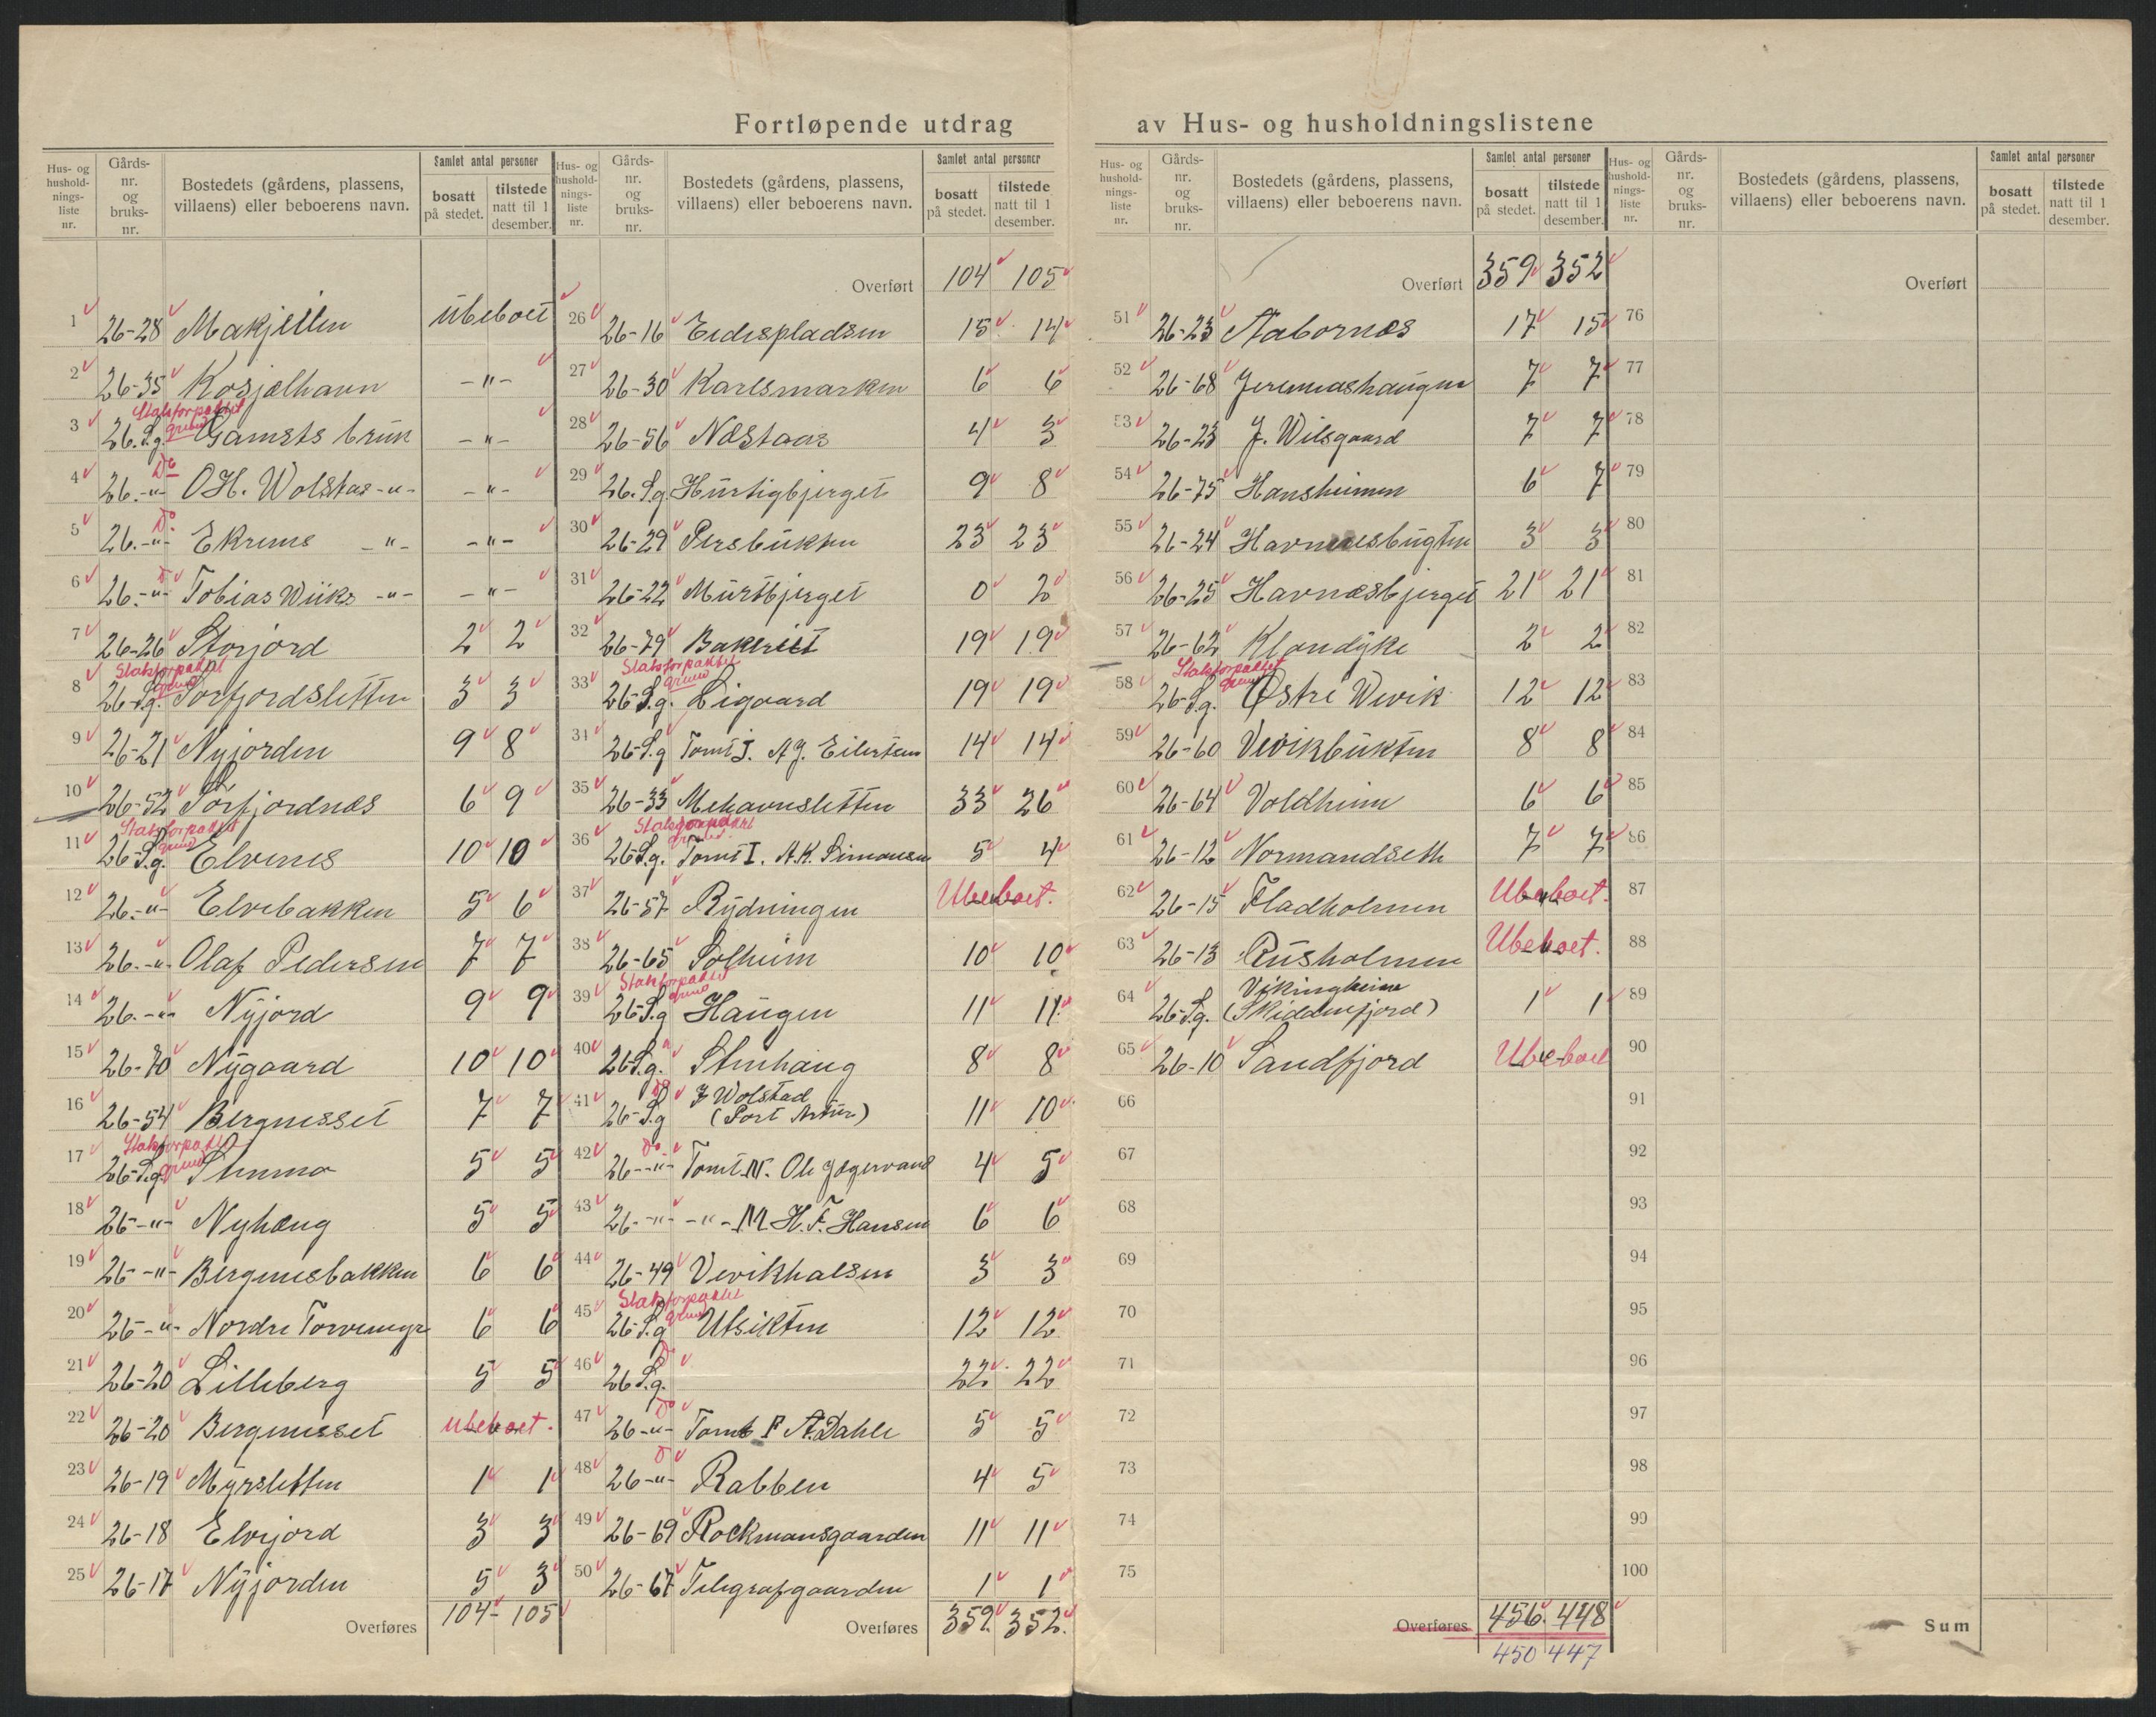 Fortløpende utdrag av Hus- og husholdningslistene
Hus- og hushold-nings-liste nr. Gårds-nr. og bruks-nr. Bostedets (gårdens, plassens, villaens) eller beboerens navn. Samlet antal personer bosatt på stedet. tilstede natt til 1 desember.
1 26-28 Makjeilen Ubeboet
2 26-35 Kosjælhavn -"-
3 26.S.g. Statsforpaktet grund Gamsts bruk -"-
4 26.-"- Do O.H. Wolstas -"- -"-
5 26.-"- Do Ekrems -"- -"-
6 26.-"- Do Tobias Wiiks -"- -"-
7 26-26 Storjord 2 2
8 26-S.g. Statsforpaktet grund Sørfjordsletten 3 3
9 26-21 Nyjorden 9 8
10 26-52 Sørfjordnæs 6 9
11 26-S.g. Statsforpaktet grund Elvenes 10 10
12 26.-"- Elvebakken 5 6
13 26.-"- Olaf Pedersen 7 7
14 26.-"- Nyjord 9 9
15 26-70 Nygaard 10 10
16 26-54 Bergnesset 7 7
17 26-S.g. Statsforpaktet grund Stenmo 5 5
18 26-"- Nyhaug 5 5
19 26-"- Bergnesbakken 6 6
20 26-"- Nordre Torvemyr 6 6
21 26-20 Lilleberg 5 5
22 26-20 Bergnesset ubeboet.
23 26-19 Myrsletten 1 1
24 26-18 Elvejord 3 3
25 26-17 Nyjorden 5 3
Overføres 104 - 105
Hus- og hushold-nings-liste nr. Gårds-nr. og bruks-nr. Bostedets (gårdens, plassens, villaens) eller beboerens navn. Samlet antal personer bosatt på stedet. tilstede natt til 1 desember.
Overført 104 105
26 26-16 Eidespladsen 15 14
27 26-30 Karlsmarken 6 6
28 26-56 Næstaas 4 3
29 26.S.g Hurtigbjerget 9 8
30 26-29 Persbukten 23 23
31 26-22 Murtbjerget 0 2
32 26-79 Bakeriet 19 19
33 26-S.g. Statsforpaktet grund Ligaard 19 19
34 26-S.g Tomt J. A.J. Eilertsen 14 14
35 26-33 Mehavnsletten 33 26
36 26-S.g. Statsforpaktet grund. Tomt I. A.K. Simonsen 5 4
37 26-57 Rydningen Ubeboet.
38 26-65 Solheim 10 10
39 26-S.g Statsforpaktet grund Haugen 11 11
40 26-S.g. Stenhaug 8 8
41 26-S.g Do J Wolstad (Port Artur) 11 10
42 26-"- Do Tomt N. Ole Jægervand 4 5
43 26.-"- -"- M. H.F. Hansen 6 6
44 26-49 Vevikhalsen 3 3
45 26-S.g Statsforpaktet grund Utsikten 12 12
46 26 S.g. Do 22 22
47 26-"- Do Tomt F A. Dahle 5 5
48 26-"- Do Rabben 4 5
49 26-69 Rockmansgaarden 11 11
50 26-67 Telegrafgaarden 1 1
Overføres 359. 352.
Hus- og hushold-nings-liste nr. Gårds-nr. og bruks-nr. Bostedets (gårdens, plassens, villaens) eller beboerens navn. Samlet antal personer bosatt på stedet. tilstede natt til 1 desember.
Overført 359 352
51 26-23 Nabornæs 17 15
52 26-68 Jeremiashaugen 7 7
53 26-23 J. Wilsgaard 7 7
54 26-75 Hansheimen 6 7
55 26-24 Havnnesbugten 3 3
56 26-25 Havnæsbjerget 21 21
57 26-62 Klondyke 2 2
58 26-S.g. Statsforpaktet grund Østre Wevik 12 12
59 26-60 Vevikbukten 8 8
60 26-64 Voldheim 6 6
61 26-12 Normandseth 7 7
62 26-15 Fladholmen Ubeboet.
63 26-13 Rusholmen Ubeboet.
64 26-S.g. Vikingheim (Skiddenfjord) 1 1
65 26-10 Sandfjord Ubeboet
66
67
68
69
70
71
72
73
74
75
Overføres 456. 448
450 447
Hus- og hushold-nings-liste nr. Gårds-nr. og bruks-nr. Bostedets (gårdens, plassens, villaens) eller beboerens navn. Samlet antal personer bosatt på stedet. tilstede natt til 1 desember.
Overført
76
77
78
79
80
81
82
83
84
85
86
87
88
89
90
91
92
93
94
95
96
97
98
99
100
Sum